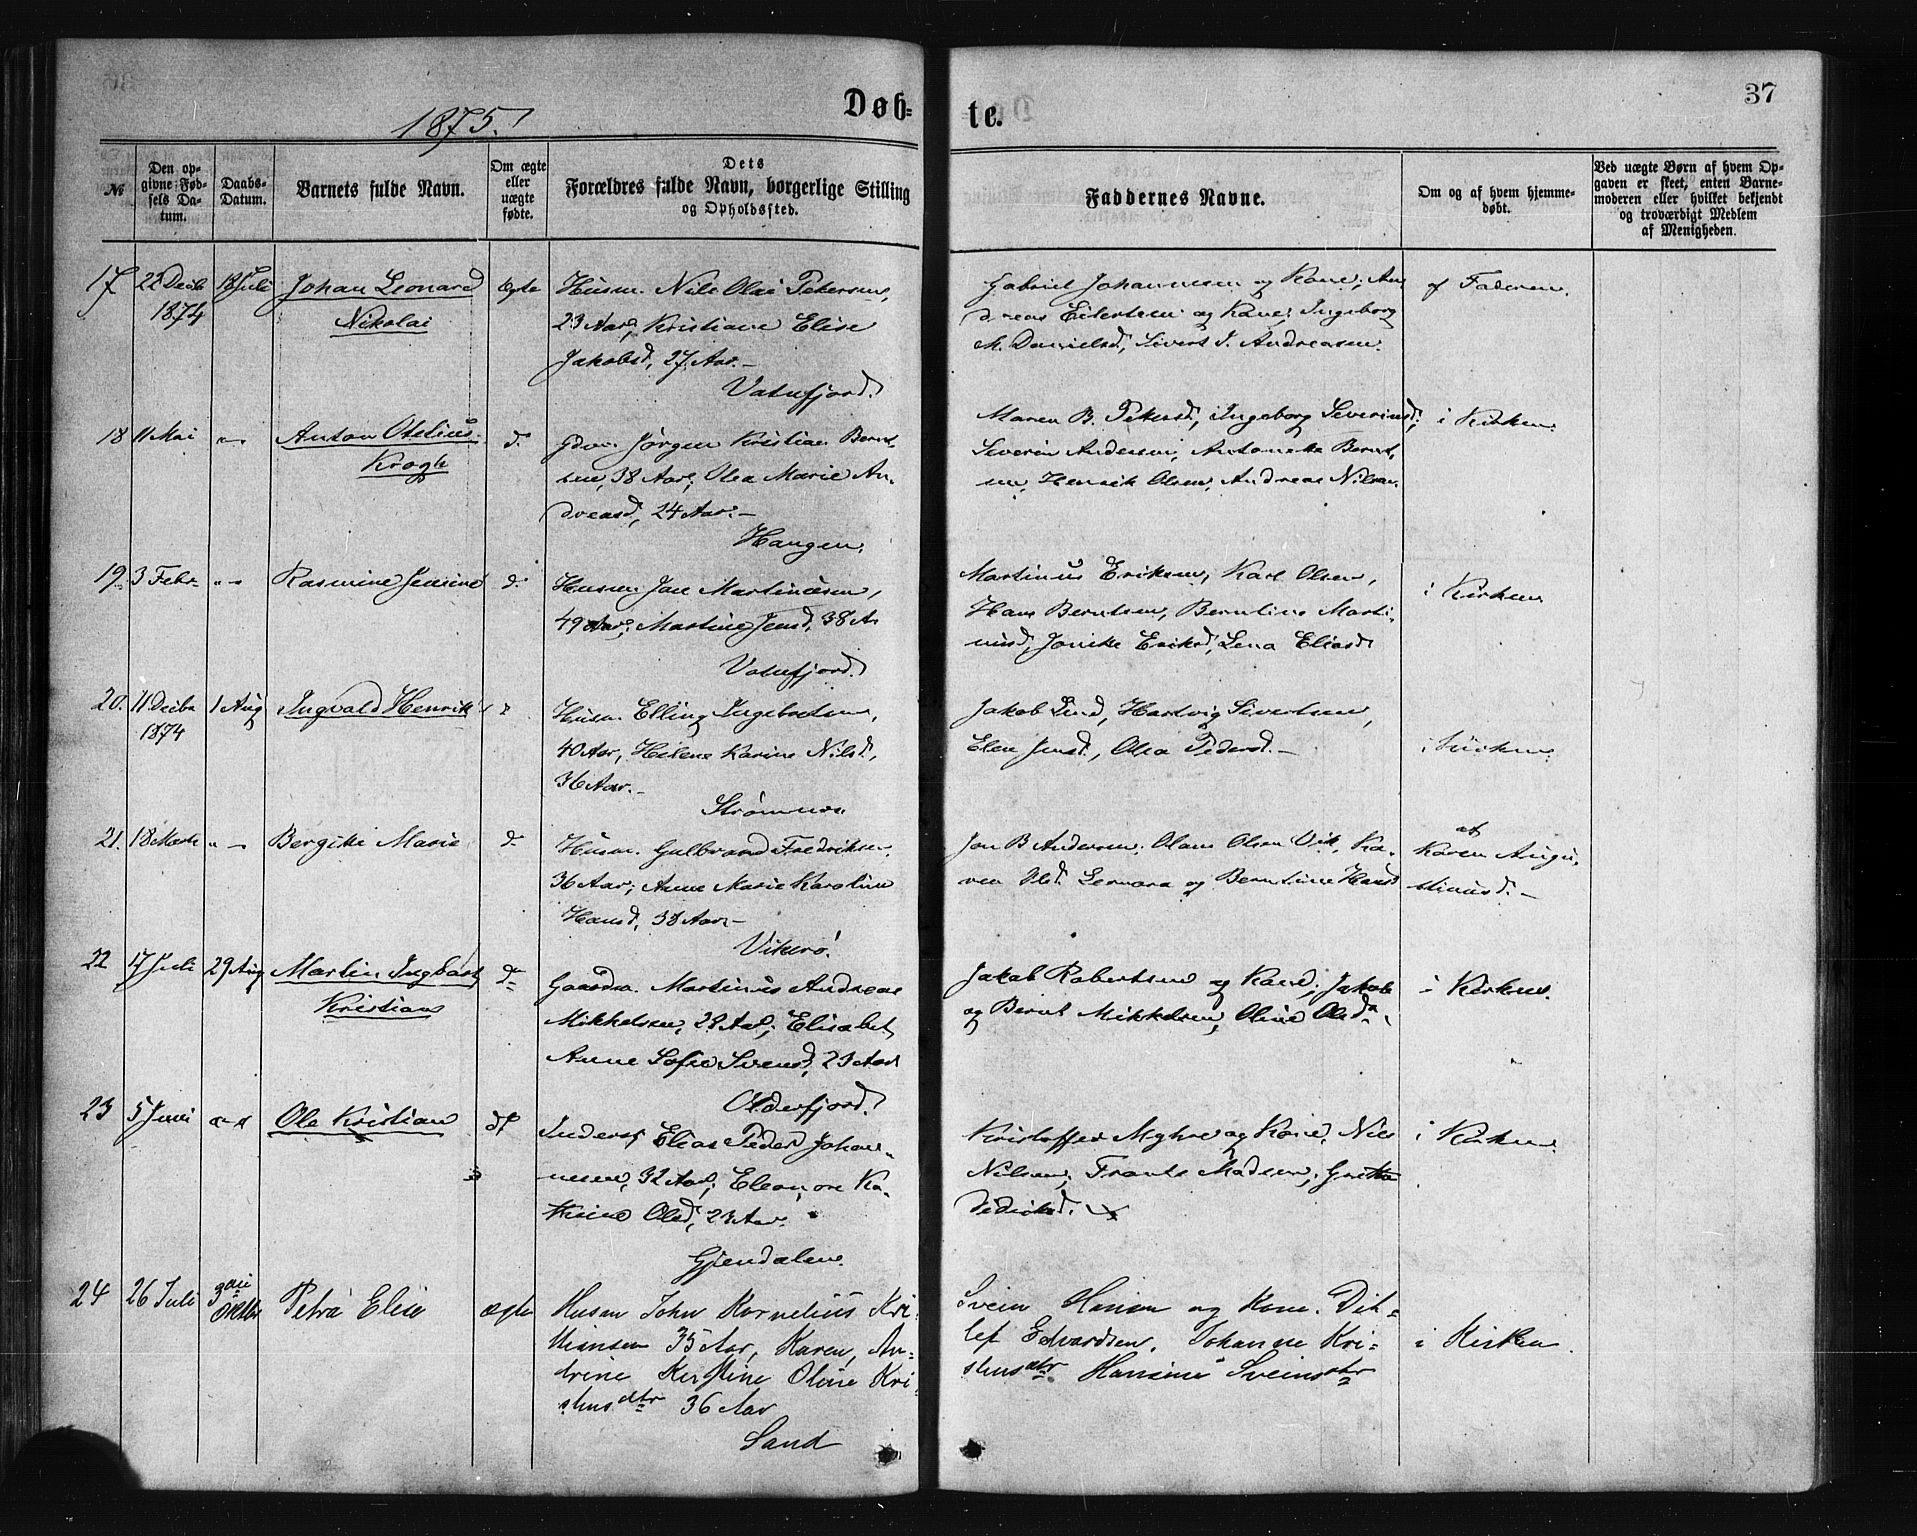 1875.
Døb-
te.
37
№
Den op-
givne Fød-
sels Da-
tum.
Daabs-
Datum.
Barnets fulde Navn.
Om ægte
eller
uægte
fødte.
Dets
Forældres fulde Navn, borgerlige Stilling
og Opholdssted.
Faddernes Navne.
Om og af hvem hjemme-
døbt.
Ved uægte Børn af hvem Op-
gaven er skeet, enten Barne-
moderen eller hvilket bekjendt
og troværdigt Medlem
af Menigheden.
17 22 Decbr 18 Juli Johan Leonard ægte Husm. Nils Olai Petersen,
1874 Nikolai 23 Aar; Kristiane Elise
Jakobsd, 27 Aar.-
Vatnfjord.
Gabriel Johannesen og Kone; An-
dreas Eilertsen og Kone; Ingeborg
M. Danielsd, Sivert J. Andreasen.
af Faderen.
18 11 Mai " - Anton Otelius d. Gdm. Jørgen Kristian Bernt-
Krogh sen, 38 Aar; Olea Marie An-
dreasd, 24 Aar.-
Haugen.
Maren B. Petersd, Ingeborg Severinsd,
Severin Andersen, Antonette Bernt-
sen, Henrik Olsen, Andreas Nilsen.
i Kirken.
19. 3 Febr " - Rasmine Jensine d. Husm. Jon Martinusen,
49 Aar; Martine Jensd, 38 A.
Vatnfjord.
Martinus Eriksen, Karl Olsen,
Hans Berntsen, Berntine Marti-
nusd, Jonike Eriksd, Lena Eliasd
i Kirken
20. 11 Decbr 1 Aug Ingvald Henrik Husm. Elling Ingebretsen,
1874 40 Aar, Helene Karine Nilsd,
36 Aar.-
Strømnes.
Jakob Lind, Hartvig Sivertsen,
Elen Jensd, Olea Pedersd.-
i Kirken.
21. 18 Marts " - Bergitte Marie d. Husm. Gulbrand Fredriksen,
36 Aar; Anne Marie Karoline
Hansd, 38 Aar.-
Vikerø.
Jon B Andersen, Olaus Olsen Vik, Ka-
ren Olsd og Berntine Hansd
af
Karen Augu-
stinusd.-
22 17 Juli 29 Aug Martin Ingvart d. Gaardm. Martinus Andreas
Kristian Mikkelsen, 28 Aar; Elisabet
Anne Sofie Svensd, 23 Aar
Olderfjord.
Jakob Robertsen og Kone; Jakob
og Bernt Mikkelsen, Oline Olsd.
i Kirken.
23 5 Juni Ole Kristian do Inderst Elias Peder Johan-
nesen, 32 Aar; Eleonore Ka-
trine Olsd, 23 Aar.
Gjendalen.
Kristoffer Myhre og Kone, Nils
Nilsen, Frants Madsen, Grethe
Didriksd.
i Kirken.
24 26 Juli 3die Oktbr Petra Elise ægte Husm John Kornelius Kri-
stiansen 35 Aar, Karen An-
drine Kirstine Oline Kri-
stensdtr 36 Aar
Sand
Svein Hansen og Kone. Dit-
lef Edvardsen. Johanne Kri-
stensdtr Hansine Sveinsdtr
i Kirken.